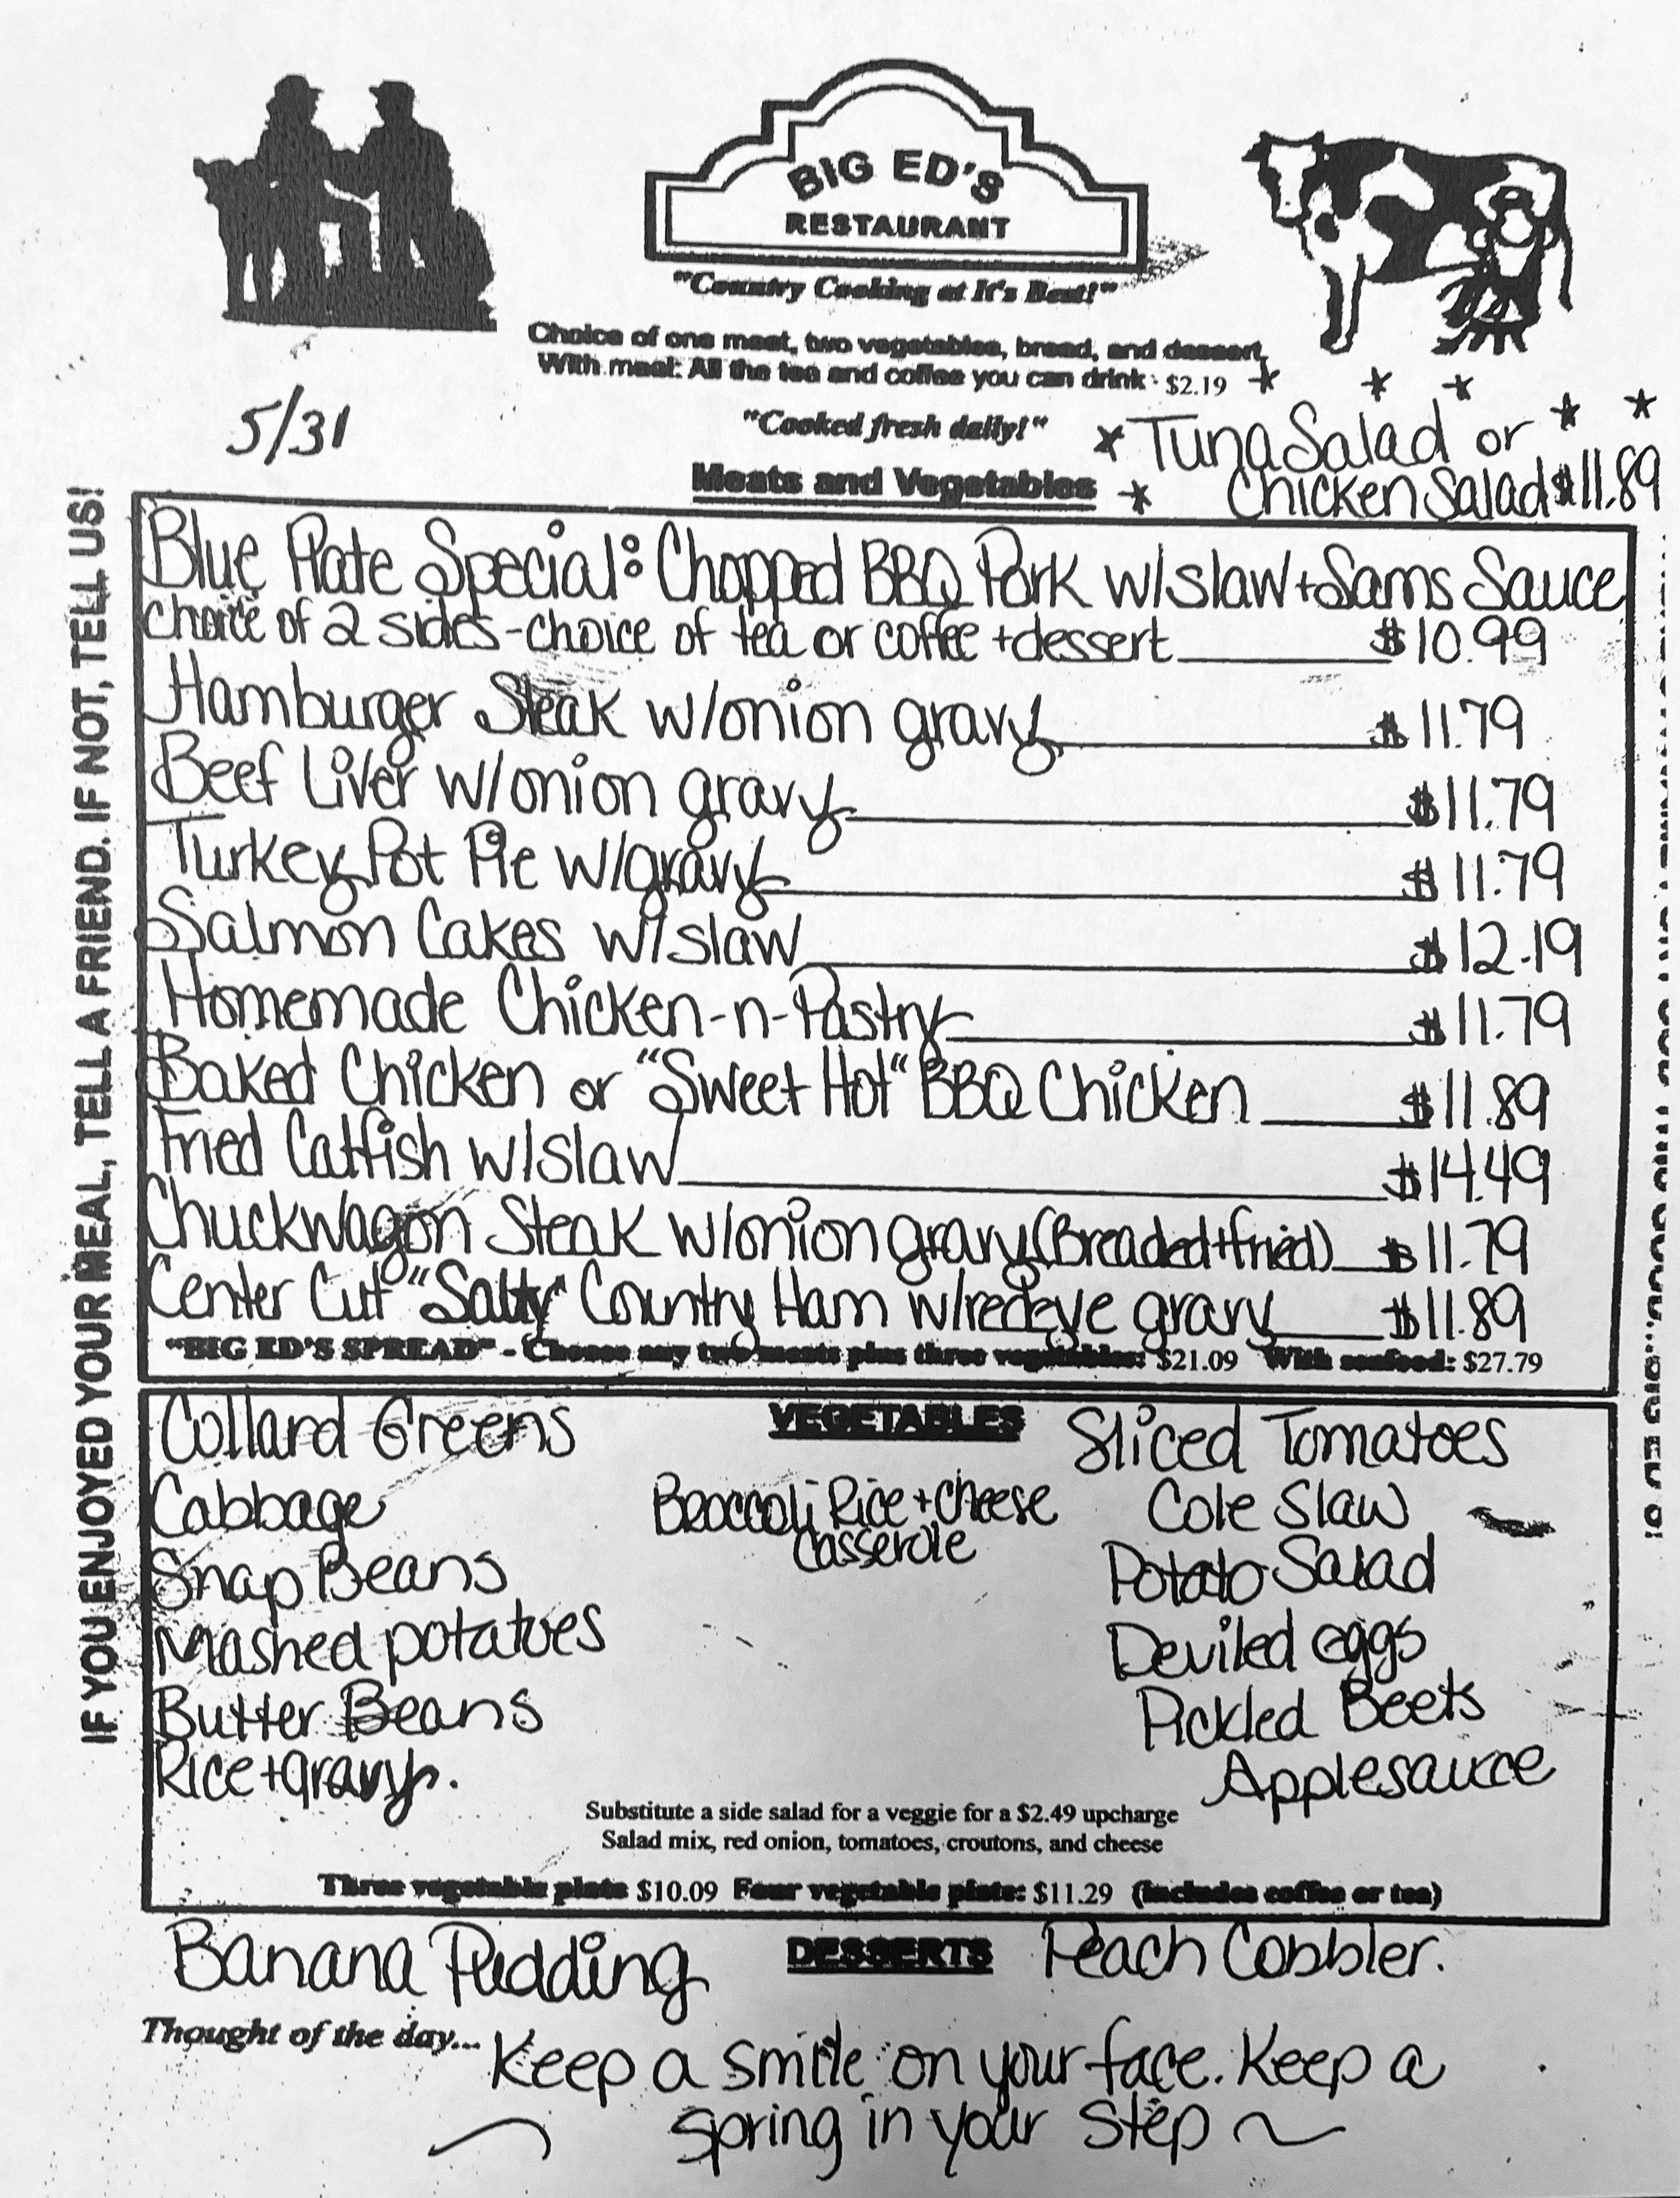 BIG ED'S
RESTAURANT
"Country Cooking at It's Best!"
Choice of one meat, two vegetables, bread, and dessert
With meal: All the tea and coffee you can drink - $2.19
5/31
"Cooked fresh daily!"
* * * * *
* Tuna Salad or
* Chicken Salad $11.89
Meats and Vegetables
Blue Plate Special: Chopped BBQ Pork w/slaw + Sams Sauce
choice of 2 sides - choice of tea or coffee + dessert $10.99
Hamburger Steak w/onion gravy $11.79
Beef Liver w/onion gravy $11.79
Turkey Pot Pie w/gravy $11.79
Salmon Cakes w/slaw $12.19
Homemade Chicken-n-Pastry $11.79
Baked Chicken or "Sweet Hot" BBQ Chicken $11.89
Fried Catfish w/slaw $14.49
Chuckwagon Steak w/onion gravy (Breaded+fried) $11.79
Center Cut "Salty" Country Ham w/redeye gravy $11.89
"BIG ED'S SPREAD" - Choose any two meats plus three vegetables: $21.09 With seafood: $27.79
VEGETABLES
Collard Greens
Cabbage
Snap Beans
Mashed potatoes
Butter Beans
Rice + gravy.
Broccoli Rice + cheese
casserole
Sliced Tomatoes
Cole Slaw
Potato Salad
Deviled eggs
Pickled Beets
Applesauce
Substitute a side salad for a veggie for a $2.49 upcharge
Salad mix, red onion, tomatoes, croutons, and cheese
Three vegetable plate $10.09 Four vegetable plate: $11.29 (includes coffee or tea)
Banana Pudding DESSERTS Peach Cobbler.
Thought of the day... Keep a smile on your face. Keep a
spring in your step ~
IF YOU ENJOYED YOUR MEAL, TELL A FRIEND. IF NOT, TELL US!